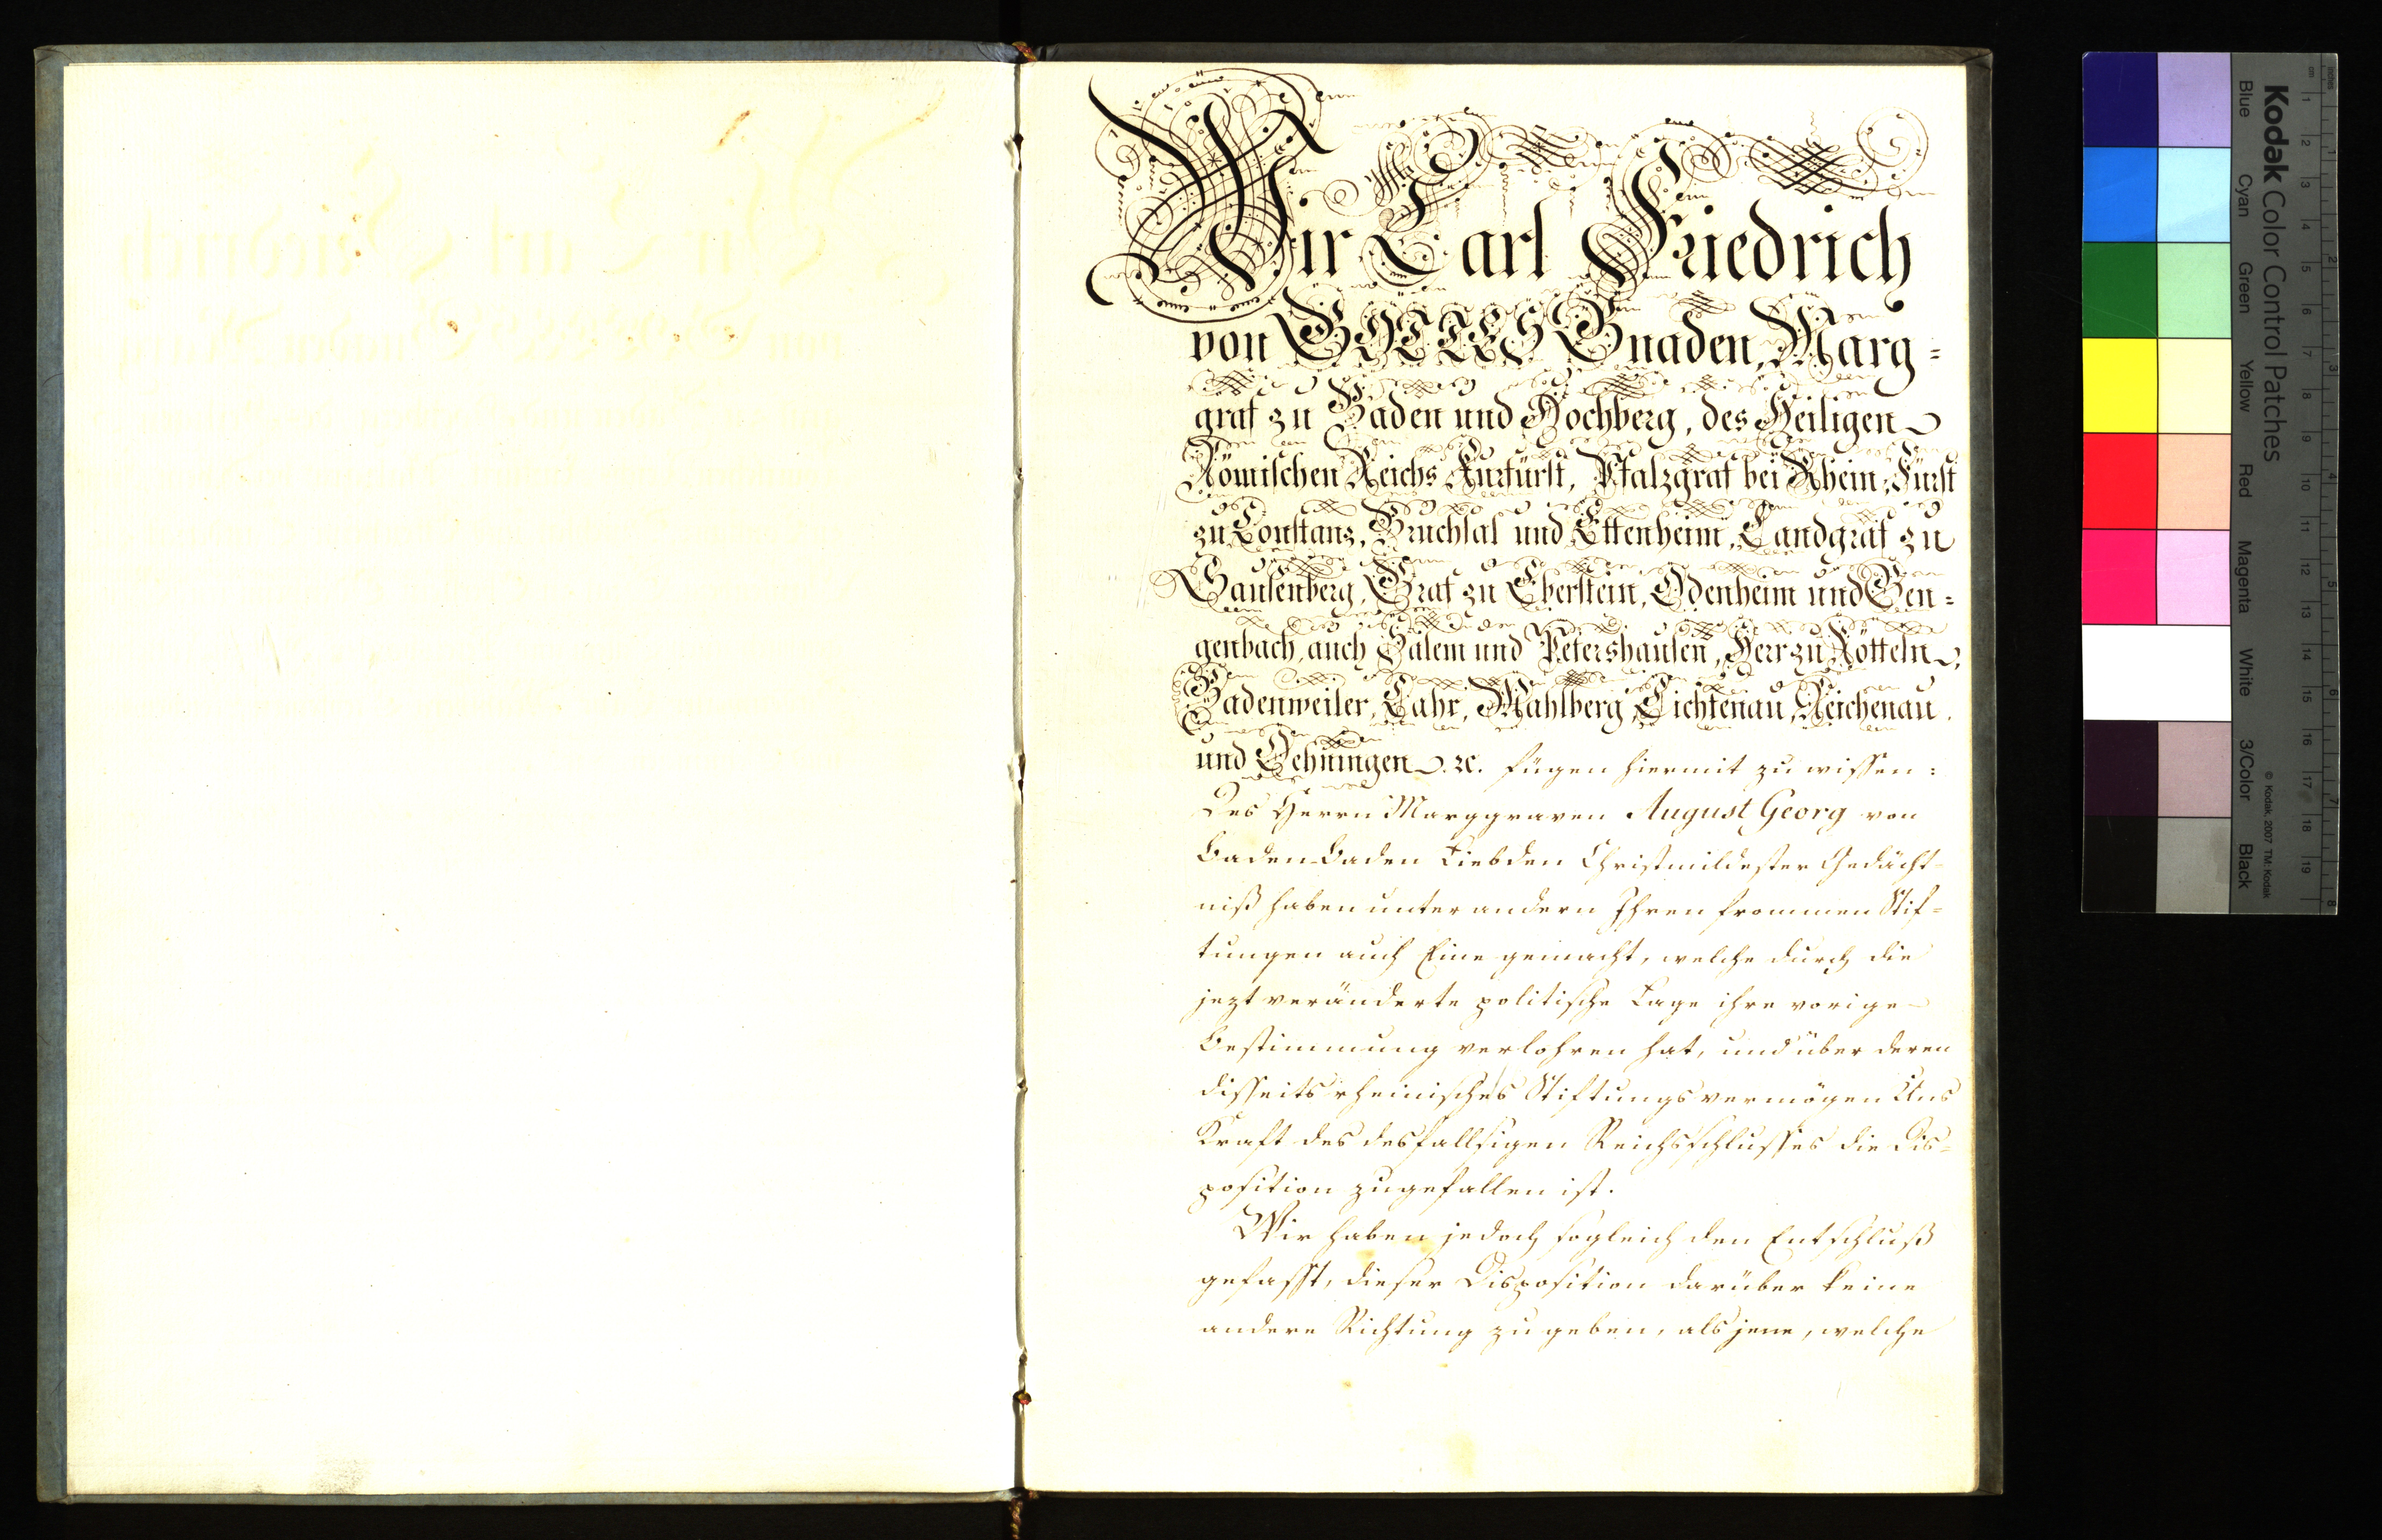 Wir Carl Friedrich
von GOTTES Gnaden, Marg=
graf zu Baden und Hochberg, des Heiligen
Römischen Reichs Kurfürst, Pfalzgraf bei Rhein, Fürst
zu Constanz, Bruchsal und Ettenheim, Landgraf zu
Sausenberg, Graf zu Eberstein, Odenheim und Gen=
genbach, auch Salem und Petershausen, Herr zu Rötteln,
Badenweiler, Lahr, Mahlberg, Lichtenau, Reichenau
und Oehningen. ꝛc. fügen hiermit zu wissen:
Des Herrn Marggraven August Georg von
Baden-Baden Liebden Christmildester Gedächt-
niß haben unter andern Ihren frommen Stif=
tungen auch Eine gemacht, welche durch die
jezt veränderte politische Lage ihre vorige
Bestimmung verlohren hat, und über deren
disseits rheinisches Stiftungsvermögen Uns
Kraft des desfallsigen Reichsschlusses die Dis=
position zugefallen ist.
Wir haben jedoch sogleich den Entschluß
gefasst, dieser Disposition darüber keine
andere Richtung zu geben, als jene, welche
Kodak Color Control Patches
Blue Cyan Green Yellow Red Magenta White 3/Color Black
© Kodak, 2007 TM: Kodak
cm 1 2 3 4 5 6 7 8 9 10 11 12 13 14 15 16 17 18 19
inches 1 2 3 4 5 6 7 8